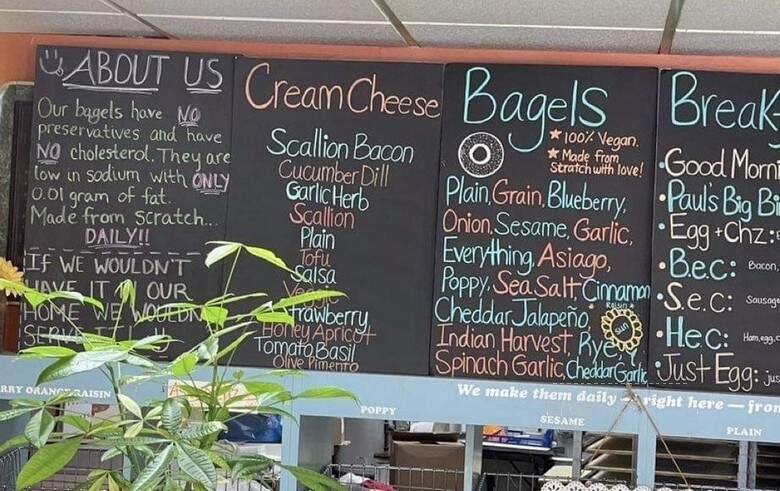 ABOUT US
Our bagels have NO
preservatives and have
NO cholesterol. They are
low in sodium with ONLY
0.01 gram of fat.
Made from scratch...
DAILY!!
IF WE WOULDN'T
HAVE IT IN OUR
HOME WE WOULDN'T
Cream Cheese
Scallion Bacon
Cucumber Dill
Garlic Herb
Scallion
Plain
Tofu
Salsa
Veggie
Strawberry
Honey Apricot
Tomato Basil
Olive Pimento
Bagels
100% Vegan.
Made from
Scratch with love!
Plain, Grain, Blueberry,
Onion, Sesame, Garlic,
Everything, Asiago,
Poppy, Sea Salt, Cinnamon
Raisin
Cheddar Jalapeño,
sun
Indian Harvest, Rye,
Spinach Garlic, Cheddar Garlic
Break
•Good Morni
•Paul's Big Bi
•Egg + Chz:
•B.e.c: Bacon,
•S.e.c: Sausage
•H.e.c: Ham, egg, c
•Just Egg: jus
RRY ORANGE RAISIN
POPPY
We make them daily — right here — fro
SESAME
PLAIN